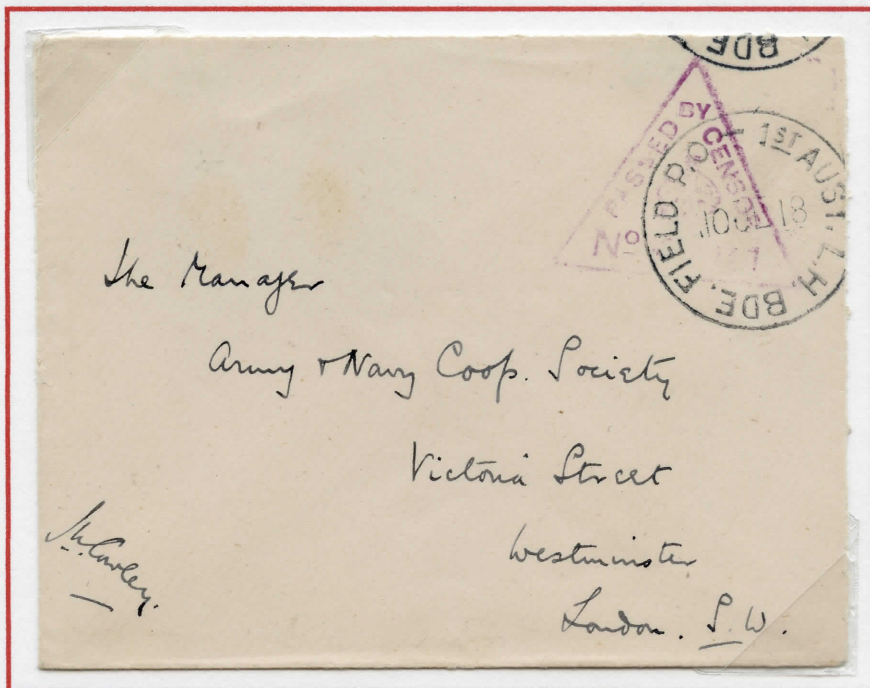 BDE
PASSED BY CENSOR
No
FIELD P.O. – 1ST AUST. L.H. BDE.
18
The Manager
Army & Navy Coop. Society
Victoria Street
Westminster
London. S.W.